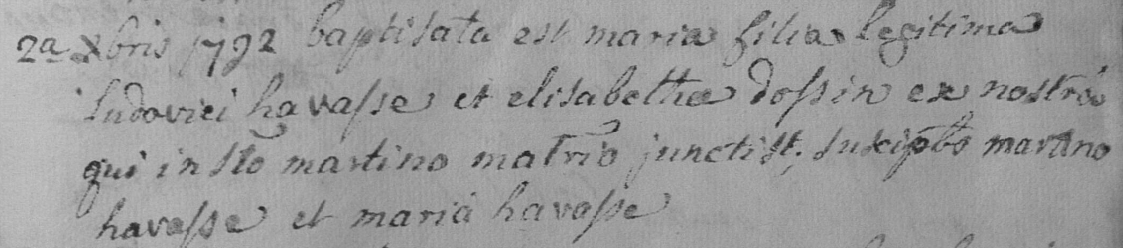 2a Xbris 1792 baptisata est maria filia legitima
ludovici havasse et elisabethæ dossin ex nostrâ
qui in sto martino matrio juncti st; susciptbs martino
havasse et mariâ havasse